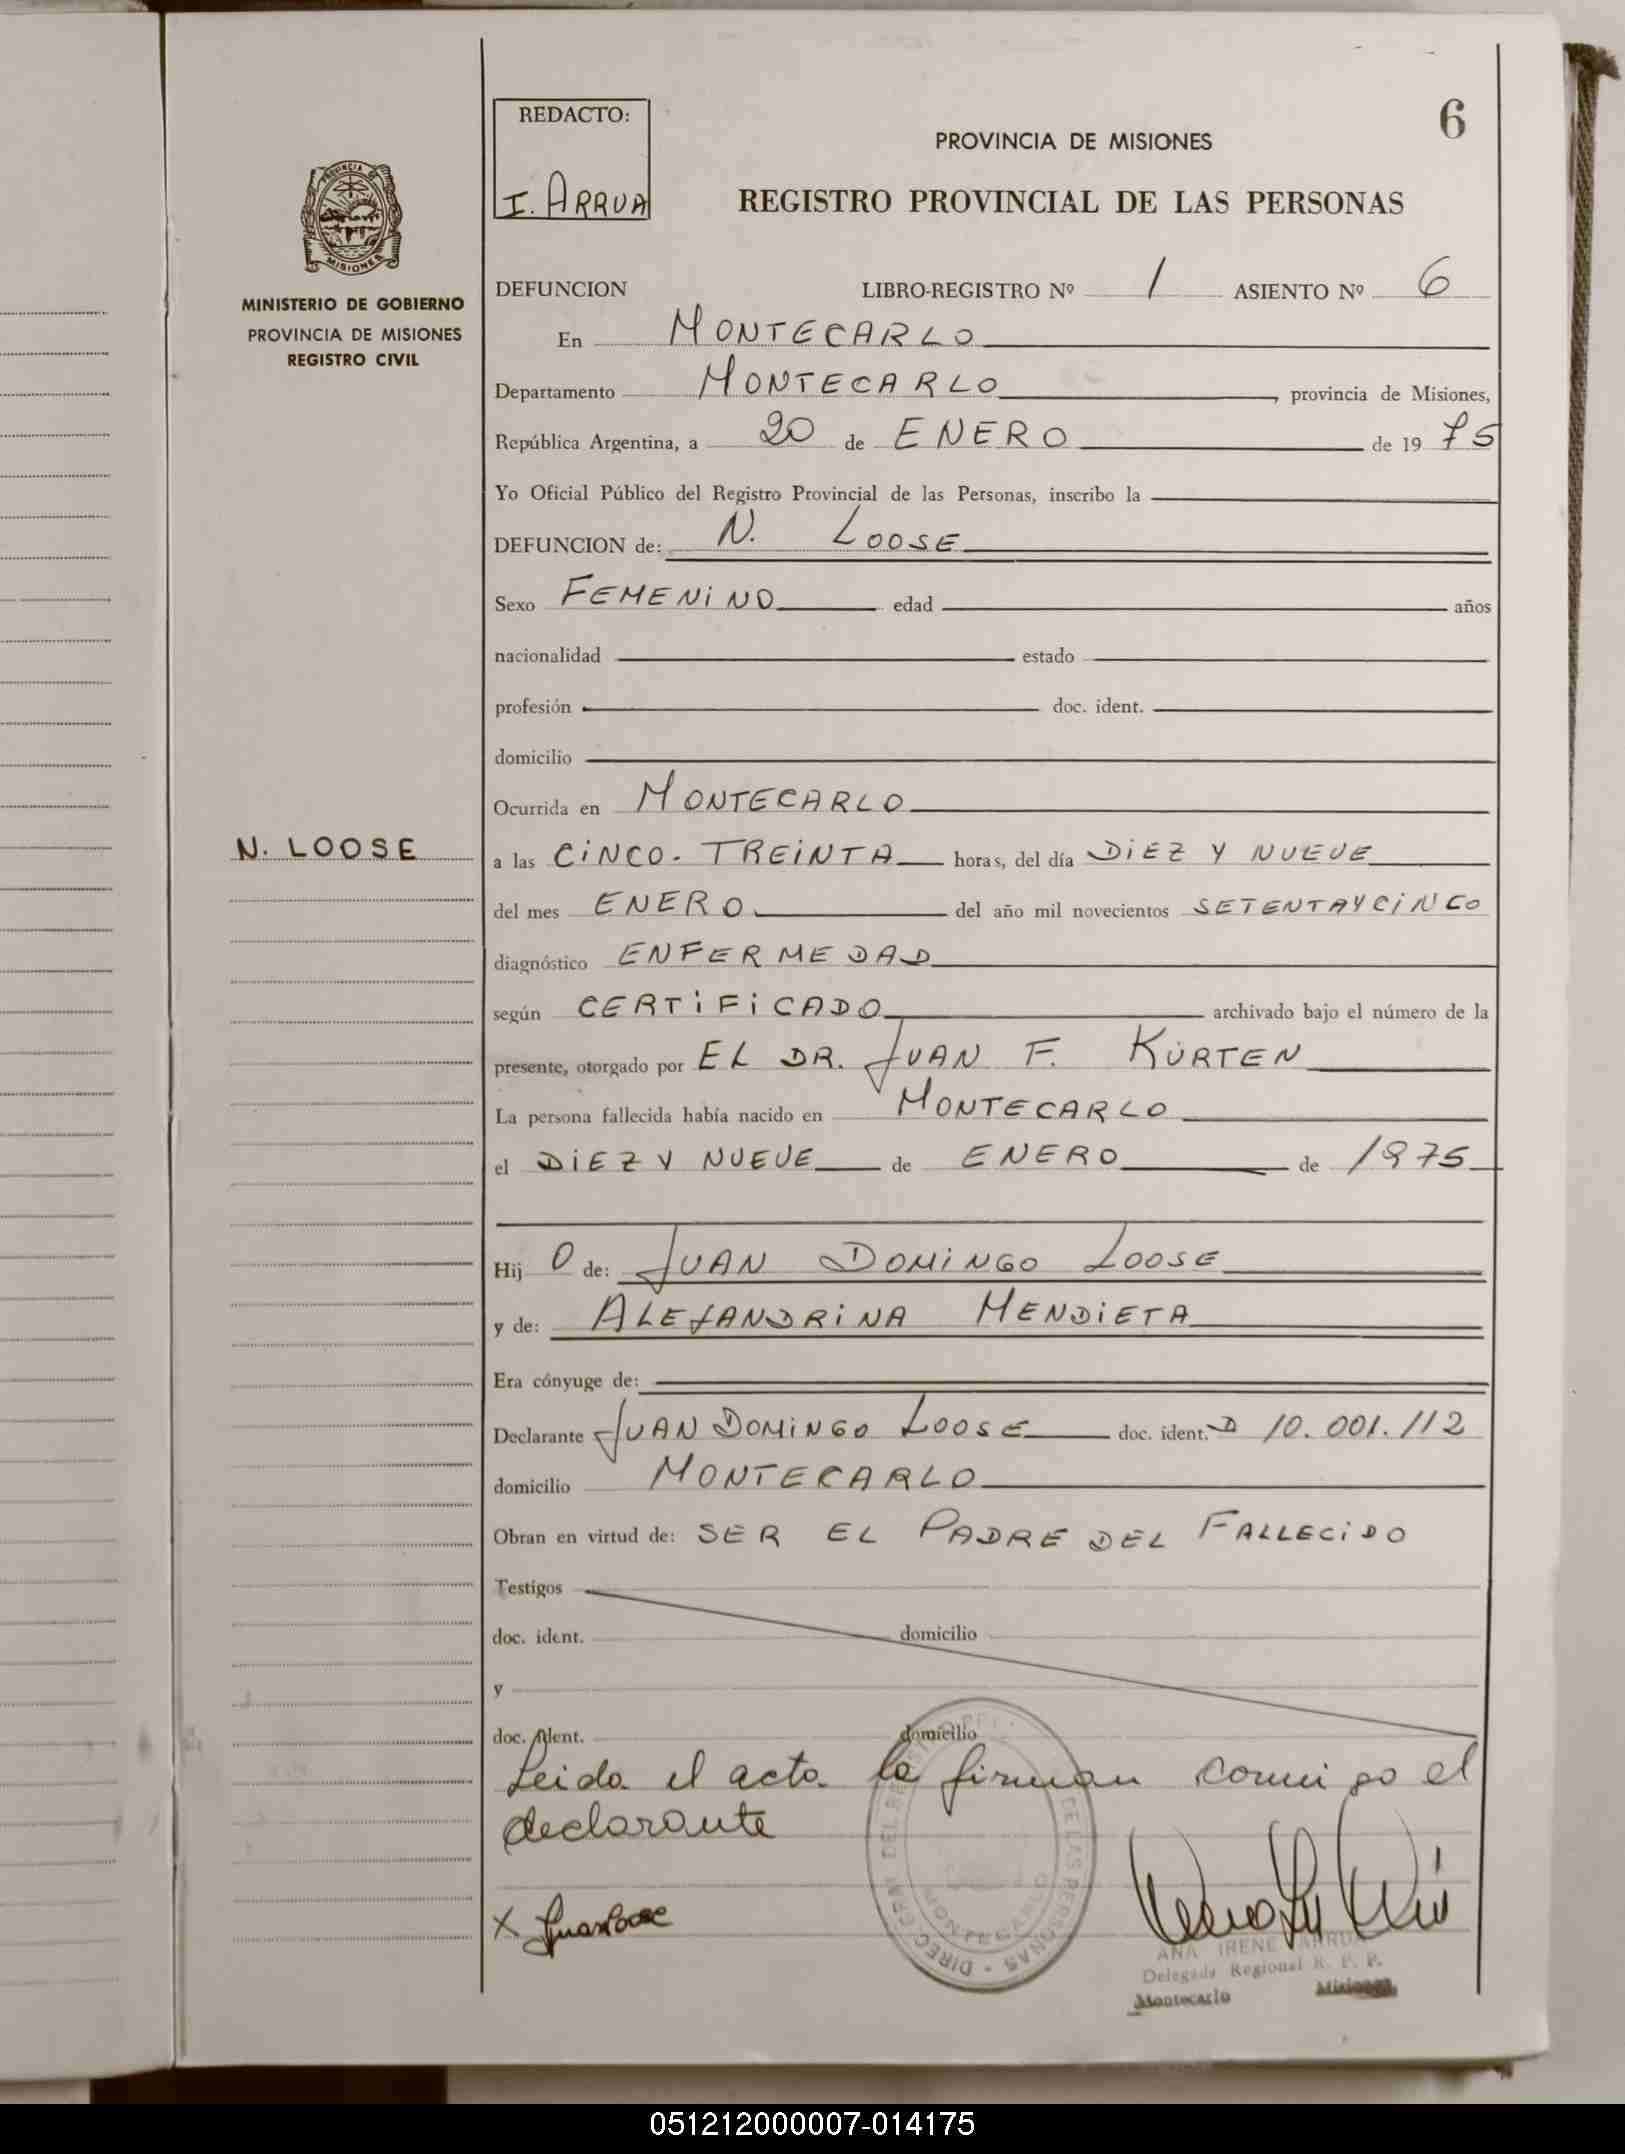 REDACTO:
I. ARRUA
6
PROVINCIA DE MISIONES
REGISTRO PROVINCIAL DE LAS PERSONAS
PROVINCIA DE
MISIONES
MINISTERIO DE GOBIERNO
PROVINCIA DE MISIONES
REGISTRO CIVIL
DEFUNCION LIBRO-REGISTRO Nº 1 ASIENTO Nº 6
En MONTECARLO
Departamento MONTECARLO, provincia de Misiones,
República Argentina, a 20 de ENERO de 1975
Yo Oficial Público del Registro Provincial de las Personas, inscribo la
DEFUNCION de: N. LOOSE
Sexo FEMENINO edad años
nacionalidad estado
profesión doc. ident.
domicilio
Ocurrida en MONTECARLO
N. LOOSE
a las CINCO. TREINTA horas, del día DIEZ Y NUEVE
del mes ENERO del año mil novecientos SETENTAYCINCO
diagnóstico ENFERMEDAD
según CERTIFICADO archivado bajo el número de la
presente, otorgado por EL DR. JUAN F. KÜRTEN
La persona fallecida había nacido en MONTECARLO
el DIEZ Y NUEVE de ENERO de 1975
Hij O de: JUAN DOMINGO LOOSE
y de: ALEJANDRINA MENDIETA
Era cónyuge de:
Declarante JUAN DOMINGO LOOSE doc. ident. D 10.001.112
domicilio MONTECARLO
Obran en virtud de: SER EL PADRE DEL FALLECIDO
Testigos
doc. ident. domicilio
y
doc. ident. domicilio
Leida el acta la firman conmigo el
declarante
X Juan Loose
DE LAS PERSONAS - DIREC. GRAL. DEL REGISTRO
MONTECARLO
ANA IRENE ARRUA
Delegada Regional R. P. P.
Montecarlo Misiones
051212000007-014175